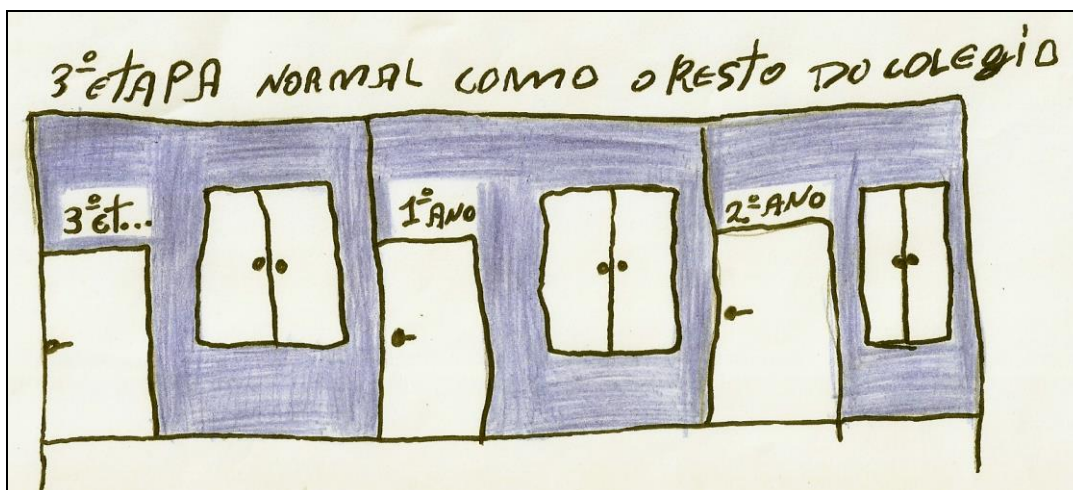 3º ETAPA NORMAL COMO O RESTO DO COLEGIO
3º ET...
1º ANO
2º ANO